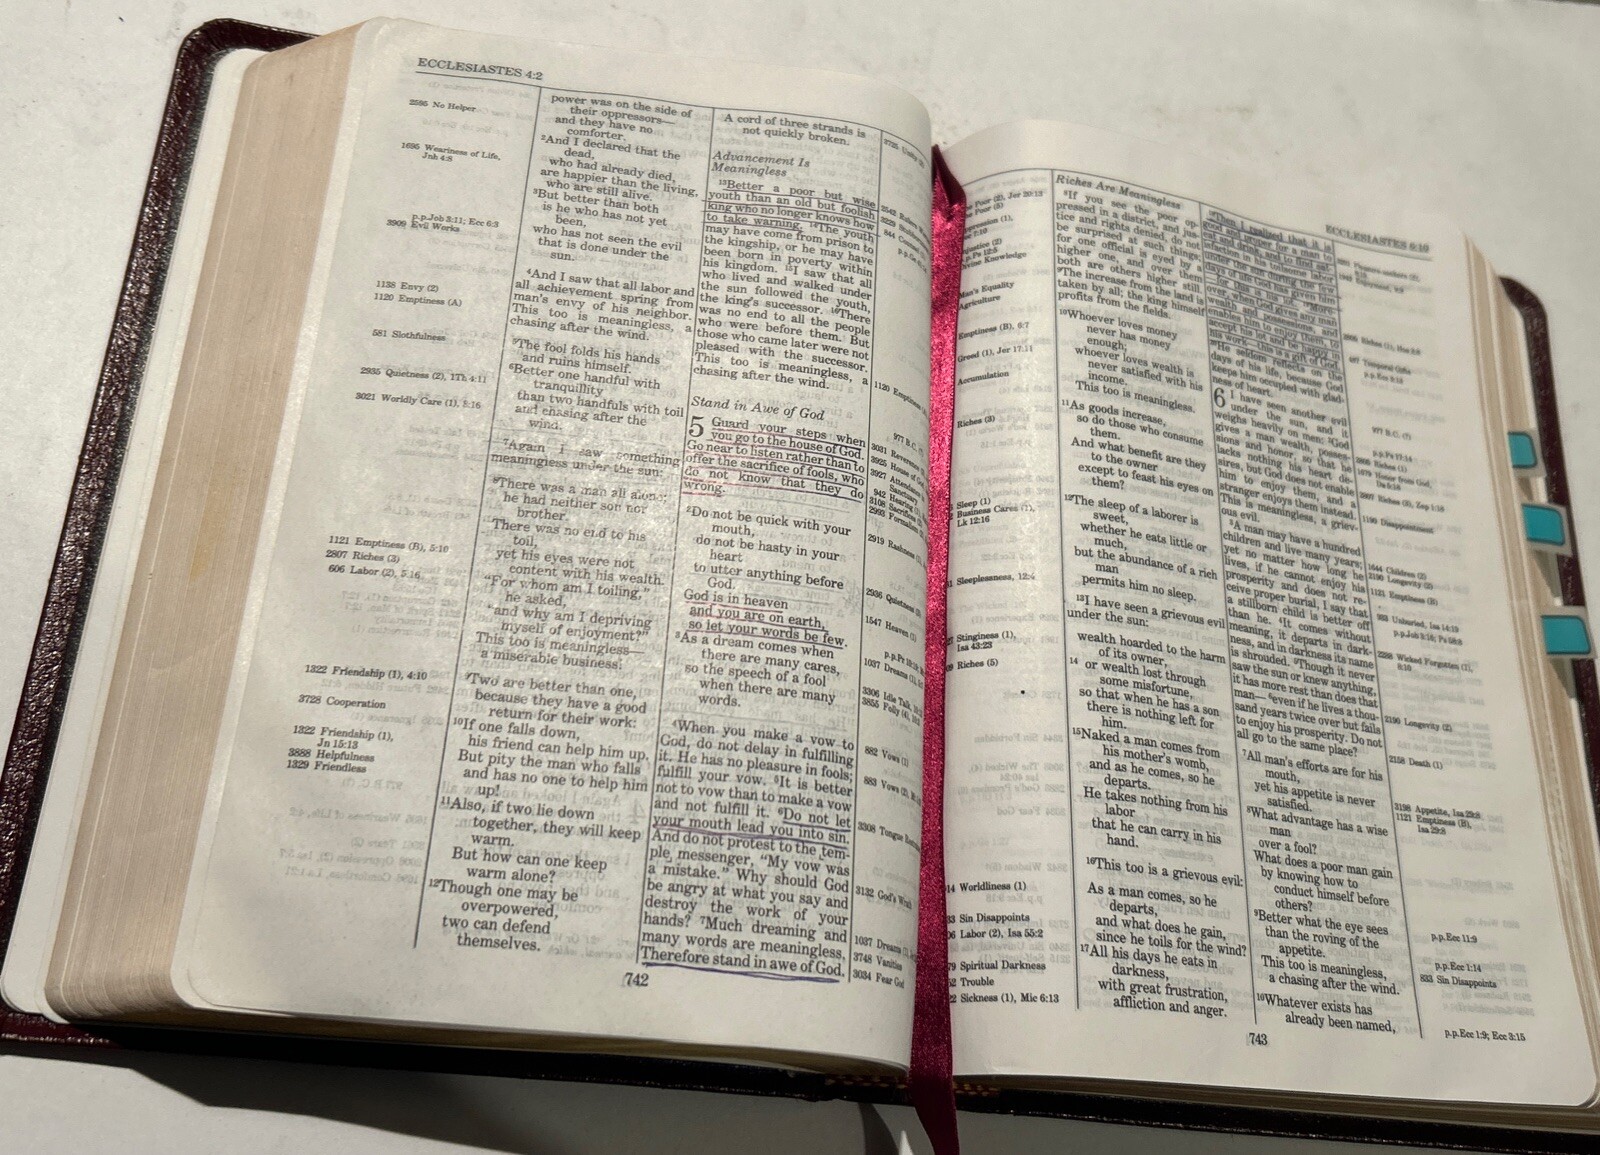 ECCLESIASTES 4:2
2595 No Helper
1695 Weariness of Life,
Jnh 4:8
p.p.Job 3:11; Ecc 6:3
3909 Evil Works
1138 Envy (2)
1120 Emptiness (A)
581 Slothfulness
2935 Quietness (2), 1Th 4:11
3021 Worldly Care (1), 8:16
1121 Emptiness (B), 5:10
2807 Riches (3)
606 Labor (2), 5:16
1322 Friendship (1), 4:10
3728 Cooperation
1322 Friendship (1),
Jn 15:13
3888 Helpfulness
1329 Friendless
power was on the side of
their oppressors—
and they have no
comforter.
2And I declared that the
dead,
who had already died,
are happier than the living,
who are still alive.
3But better than both
is he who has not yet
been,
who has not seen the evil
that is done under the
sun.
4And I saw that all labor and
all achievement spring from
man's envy of his neighbor.
This too is meaningless, a
chasing after the wind.
5The fool folds his hands
and ruins himself.
6Better one handful with
tranquillity
than two handfuls with toil
and chasing after the
wind.
7Again I saw something
meaningless under the sun:
8There was a man all alone;
he had neither son nor
brother.
There was no end to his
toil,
yet his eyes were not
content with his wealth.
"For whom am I toiling,"
he asked,
"and why am I depriving
myself of enjoyment?"
This too is meaningless—
a miserable business!
9Two are better than one,
because they have a good
return for their work:
10If one falls down,
his friend can help him up.
But pity the man who falls
and has no one to help him
up!
11Also, if two lie down
together, they will keep
warm.
But how can one keep
warm alone?
12Though one may be
overpowered,
two can defend
themselves.
A cord of three strands is
not quickly broken.
Advancement Is
Meaningless
13Better a poor but wise
youth than an old but foolish
king who no longer knows how
to take warning. 14The youth
may have come from prison to
the kingship, or he may have
been born in poverty within
his kingdom. 15I saw that all
who lived and walked under
the sun followed the youth,
the king's successor. 16There
was no end to all the people
who were before them. But
those who came later were not
pleased with the successor.
This too is meaningless, a
chasing after the wind.
Stand in Awe of God
5 Guard your steps when
you go to the house of God.
Go near to listen rather than to
offer the sacrifice of fools, who
do not know that they do
wrong.
2Do not be quick with your
mouth,
do not be hasty in your
heart
to utter anything before
God.
God is in heaven
and you are on earth,
so let your words be few.
3As a dream comes when
there are many cares,
so the speech of a fool
when there are many
words.
4When you make a vow to
God, do not delay in fulfilling
it. He has no pleasure in fools;
fulfill your vow. 5It is better
not to vow than to make a vow
and not fulfill it. 6Do not let
your mouth lead you into sin.
And do not protest to the tem-
ple messenger, "My vow was
a mistake." Why should God
be angry at what you say and
destroy the work of your
hands? 7Much dreaming and
many words are meaningless.
Therefore stand in awe of God.
1120 Emptiness
977 B.C.
3031 Reverence
3925 House of
3927 Attendance
Sanctuary
942 Hearing
3108 Sacrifices
2993
2919 Rashness
2936 Quietness
1547 Heaven (1)
1037 Dreams (1),
3306 Idle Talk,
3855 Folly (4),
882 Vows (1)
883 Vows (2),
3308 Tongue
3132 God's
1037 Dreams (1),
3748 Vanities
3034 Fear God
742
Poor (2), Jer 20:13
Poor (5)
(1),
7:10
(2)
Knowledge
Man's Equality
Agriculture
Emptiness (B), 6:7
Greed (1), Jer 17:11
Accumulation
Riches (3)
Sleep (1)
Business Cares (1),
Lk 12:16
Sleeplessness,
Stinginess (1),
Isa 43:23
Riches (5)
14 Worldliness (1)
Sin Disappoints
Labor (2), Isa 55:2
Spiritual Darkness
Trouble
Sickness (1), Mic 6:13
Riches Are Meaningless
8If you see the poor op-
pressed in a district, and jus-
tice and rights denied, do not
be surprised at such things;
for one official is eyed by a
higher one, and over them
both are others higher still.
9The increase from the land is
taken by all; the king himself
profits from the fields.
10Whoever loves money
never has money
enough;
whoever loves wealth is
never satisfied with his
income.
This too is meaningless.
11As goods increase,
so do those who consume
them.
And what benefit are they
to the owner
except to feast his eyes on
them?
12The sleep of a laborer is
sweet,
whether he eats little or
much,
but the abundance of a rich
man
permits him no sleep.
13I have seen a grievous evil
under the sun:
wealth hoarded to the harm
of its owner,
14 or wealth lost through
some misfortune,
so that when he has a son
there is nothing left for
him.
15Naked a man comes from
his mother's womb,
and as he comes, so he
departs.
He takes nothing from his
labor
that he can carry in his
hand.
16This too is a grievous evil:
As a man comes, so he
departs,
and what does he gain,
since he toils for the wind?
17All his days he eats in
darkness,
with great frustration,
affliction and anger.
ECCLESIASTES 6:10
18Then I realized that it is
good and proper for a man to
eat and drink, and to find sat-
isfaction in his toilsome labor
under the sun during the few
days of life God has given him
—for this is his lot. 19More-
over, when God gives any man
wealth and possessions, and
enables him to enjoy them, to
accept his lot and be happy in
his work—this is a gift of God.
20He seldom reflects on the
days of his life, because God
keeps him occupied with glad-
ness of heart.
6 I have seen another evil
under the sun, and it
weighs heavily on men: 2God
gives a man wealth, posses-
sions and honor, so that he
lacks nothing his heart de-
sires, but God does not enable
him to enjoy them, and a
stranger enjoys them instead.
This is meaningless, a griev-
ous evil.
3A man may have a hundred
children and live many years;
yet no matter how long he
lives, if he cannot enjoy his
prosperity and does not re-
ceive proper burial, I say that
a stillborn child is better off
than he. 4It comes without
meaning, it departs in dark-
ness, and in darkness its name
is shrouded. 5Though it never
saw the sun or knew anything,
it has more rest than does that
man— 6even if he lives a thou-
sand years twice over but fails
to enjoy his prosperity. Do not
all go to the same place?
7All man's efforts are for his
mouth,
yet his appetite is never
satisfied.
8What advantage has a wise
man
over a fool?
What does a poor man gain
by knowing how to
conduct himself before
others?
9Better what the eye sees
than the roving of the
appetite.
This too is meaningless,
a chasing after the wind.
10Whatever exists has
already been named,
Temporal Gifts
977 B.C. (?)
Riches (1)
Honor from God,
Riches (5), Zep 1:18
1190 Disappointment
1644 Children (2)
2190 Longevity (2)
1121 Emptiness (B)
Unburied, Isa 14:19
p.p.Job 3:16; Ps 58:8
2288 Wicked Forgotten (1),
8:10
2190 Longevity (2)
2158 Death (1)
3198 Appetite, Isa 29:8
1121 Emptiness (B),
Isa 29:8
p.p.Ecc 11:9
p.p.Ecc 1:14
833 Sin Disappoints
p.p.Ecc 1:9; Ecc 3:15
743